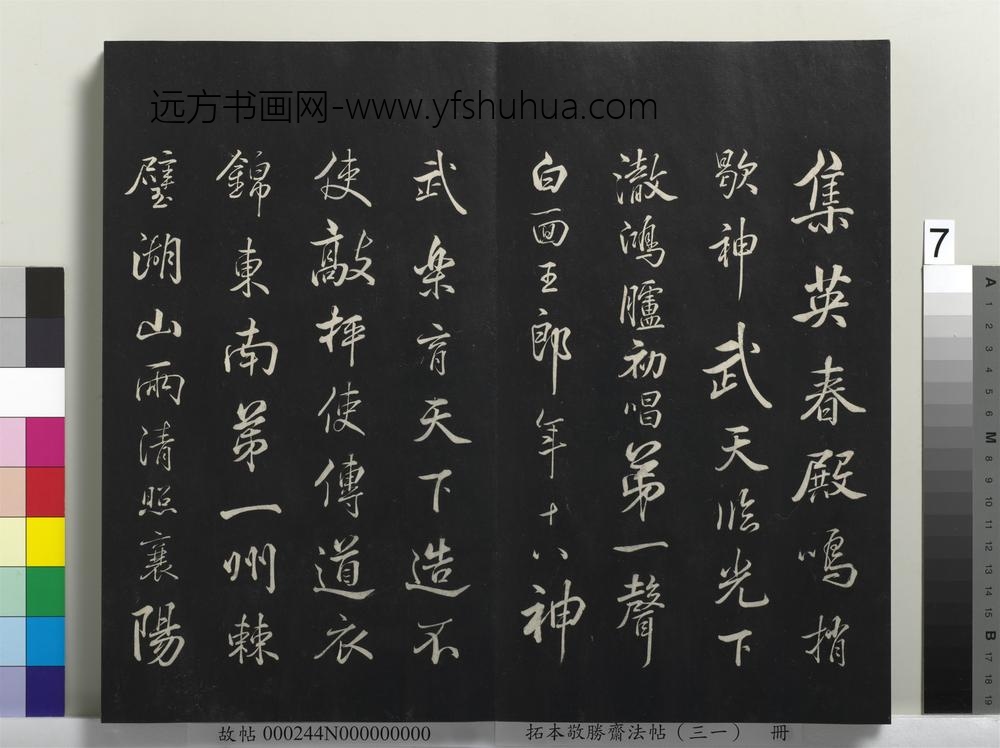 远方书画网-www.yfshuhua.com
集英春殿鳴捎
歇神武天臨光下
澈鴻臚初唱第一聲
白面王郎年十八神
武樂育天下造不
使敲抨使傳道衣
錦東南第一州棘
璧湖山兩清照襄陽
7
A 1 2 3 4 5 6 M 8 9 10 11 12 13 14 15 B 17 18 19
故帖 000244N000000000
拓本敬勝齋法帖（三一） 冊